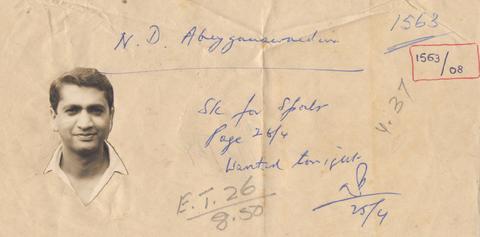 N. D. Abeygunawardena
1563
1563/08
Sk for Sports
Page 26/4
Wanted tonight
25/4
4.37
E.T. 26
8.50